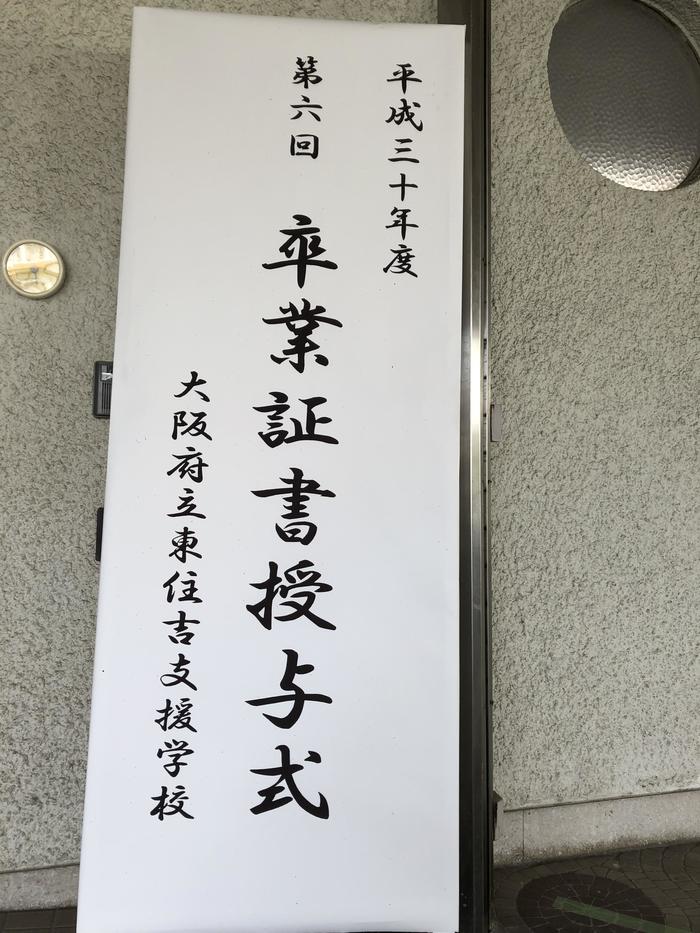 平成三十年度
第六回 卒業証書授与式
大阪府立東住吉支援学校